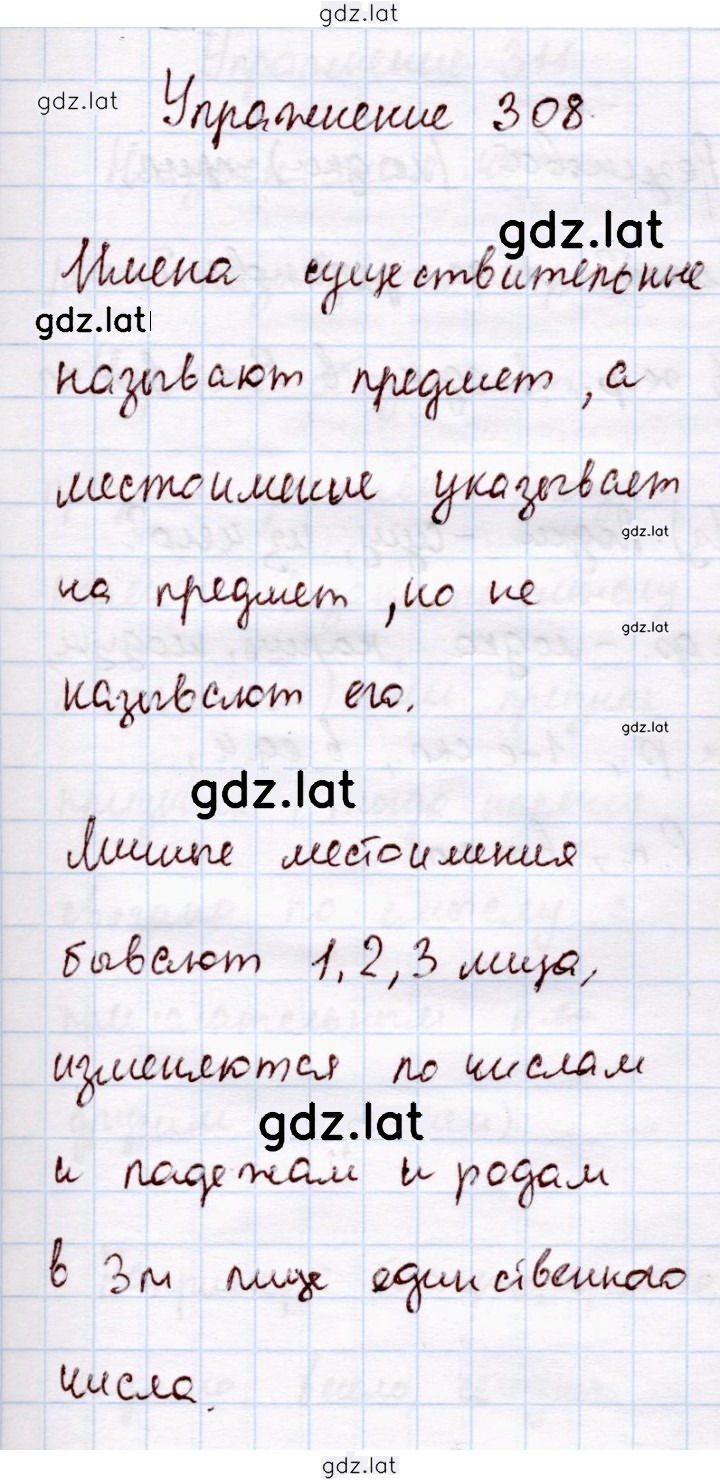 gdz.lat
gdz.lat
Упражнение 308.
gdz.lat
Имена существительные
gdz.lat
называют предмет, а
местоимение указывает
gdz.lat
на предмет, но не
gdz.lat
называют его.
gdz.lat
gdz.lat
Личные местоимения
бывают 1, 2, 3 лица,
изменяются по числам
gdz.lat
и падежам и родам
в 3м лице единственного
числа.
gdz.lat